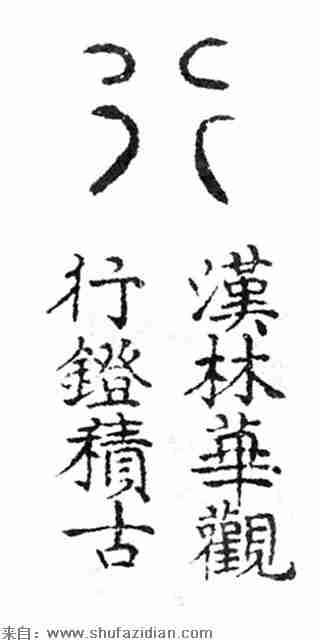 漢林華觀
行鐙積古
来自：www.shufazidian.com